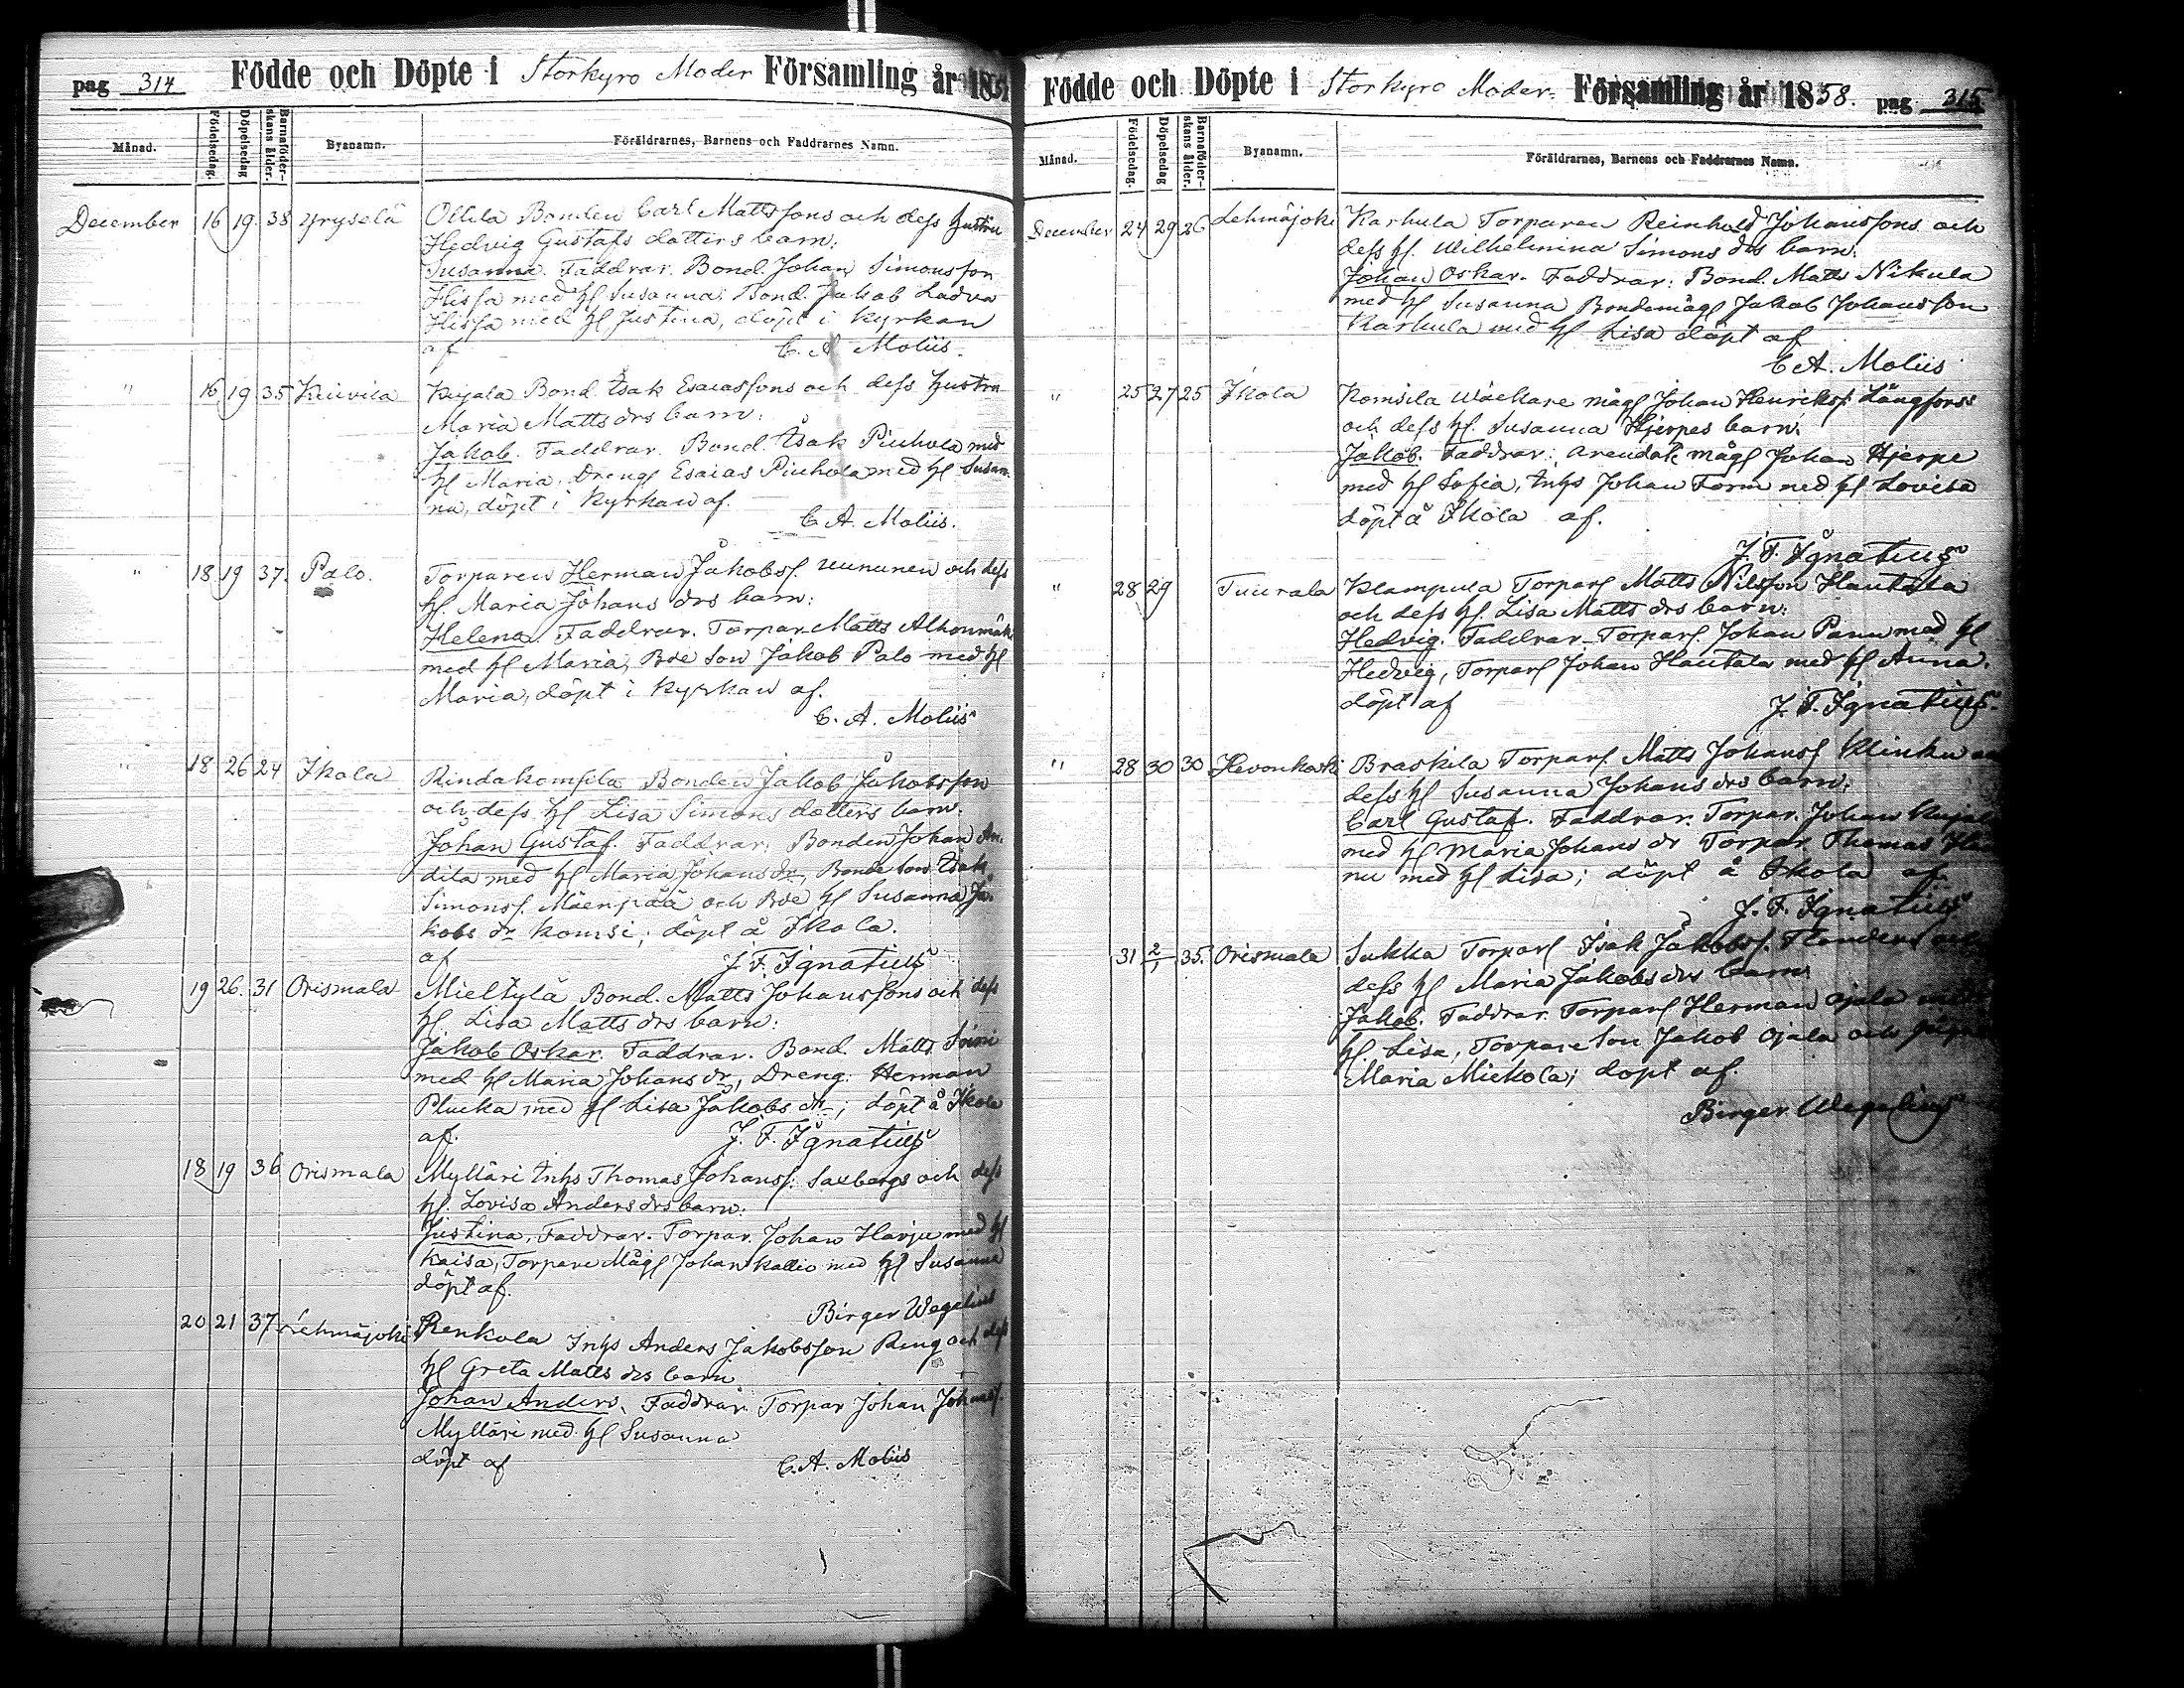 pag 314 Födde och Döpte i Storkyro Moder Församling år 185
Månad. Födelsedag. Döpelsedag Barnaföder-skans ålder. Byanamn. Föräldrarnes, Barnens och Faddrarnes Namn.
December 16 19 38 Yryselä Ollila Bonden Carl Mattssons och dess hustru
Hedvig Gustafs dotters barn:
Susanna. Faddrar. Bond. Johan Simonsson
Hissa med h. Susanna; Bond. Jakob Ladva
Hissa med h. Justina, döpt i Kyrkan
af C. A. Moliis.
" 16 19 35 Kuivila Kujala Bond. Isak Esaiassons och dess hustru
Maria Matts drs barn:
Jakob. Faddrar. Bond. Isak Piuhola med
h. Maria, Dreng Esaias Piuhola med h. Susan-
na, döpt i Kyrkan af.
C. A. Moliis.
" 18 19 37. Palo. Torparen Herman Jakobss. Uununen och dess
h. Maria Johans drs barn:
Helena. Faddrar. Torpar. Matts Alhonmäki
med h. Maria, Bde Son Jakob Palo med h.
Maria, döpt i Kyrkan af.
C. A. Moliis
" 18 26 24 Ikola Rindakomsila Bonden Jakob Jakobsson
och dess h. Lisa Simons dotters barn.
Johan Gustaf. Faddrar: Bonden Johan An-
dila med h. Maria Johans dr, Bonde Son Isak
Simonss. Mäenpää och Bde h. Susanna Ja-
kobs dr Komsi; döpt å Ikola.
af J. F. Ignatius
19 26. 31 Orismala Mieltylä Bond. Matts Johanssons och dess
h. Lisa Matts drs barn:
Jakob Oskar. Faddrar. Bond. Matts Soini
med h. Maria Johans dr, Dreng. Herman
Plucka med h. Lisa Jakobs dr; döpt å Ikola
af. J. F. Ignatius
18 19 36 Orismala Myllari Inhs Thomas Johanss. Saxbergs och dess
h. Lovisa Anders drs barn.
Justina, Faddrar. Torpar. Johan Harju med h.
Kaisa, Torpare Måg Johan Kallio med h. Susanna
döpt af.
Birger Wegelius
20 21 37 Lehmäjoki Renkola Inhs Anders Jakobsson Ring och dess
h. Greta Matts drs barn
Johan Anders. Faddrar Torpar Johan Johanss.
Myllari med h. Susanna
döpt af C. A. Moliis
Födde och Döpte i Storkyro Moder- Församling år 1858. pag 315
Månad. Födelsedag. Döpelsedag Barnaföder-skans ålder. Byanamn. Föräldrarnes, Barnens och Faddrarnes Namn.
December 24 29 26 Lehmäjoki Karhula Torparen Reinhold Johanssons och
dess h. Wilhelmina Simons drs barn:
Johan Oskar. Faddrar: Bond. Matts Nikula
med h. Susanna Bondemåg Jakob Johansson
Karhula med h. Lisa döpt af
C A. Moliis
" 25 27 25 Ikola Komsila Wäckare måg Johan Henrikss. Långforss
och dess h. Susanna Hjerpes barn.
Jakob. Faddrar: Arendat. måg Johan Hjerpe
med h. Sofia, Inhs Johan Form med h. Lovisa
döpt å Ikola af.
J. F. Ignatius
" 28 29 Tuurala Klampula Torpar Matts Nilsson Hautala
och dess h. Lisa Matts drs barn:
Hedvig. Faddrar. Torpar Johan Panu med h.
Hedvig, Torpar Johan Hautala med h. Anna.
döpt af J. F. Ignatius.
" 28 30 30 Hevonkoski Braskila Torpar Matts Johanss. Klinku
dess h. Susanna Johans drs barn:
Carl Gustaf. Faddrar. Torpar. Johan
med h. Maria Johans dr Torpar. Thomas
nu med h. Lisa; döpt å Ikola af.
J. F. Ignatius
31 2/1 35. Orismala Sukka Torpar Isak Jakobss. Flanders
dess h. Maria Jakobs drs barn.
Jakob. Faddrar. Torpar Herman Ojala
h. Lisa, Torpare Son Jakob Ojala och
Maria Mickola; döpt af.
Birger Wegelius